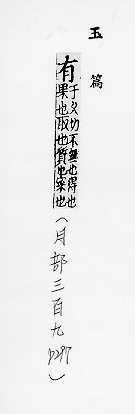 玉篇
有
于久切不無也得也
果也取也質也寀也
(月部三百九 P297)